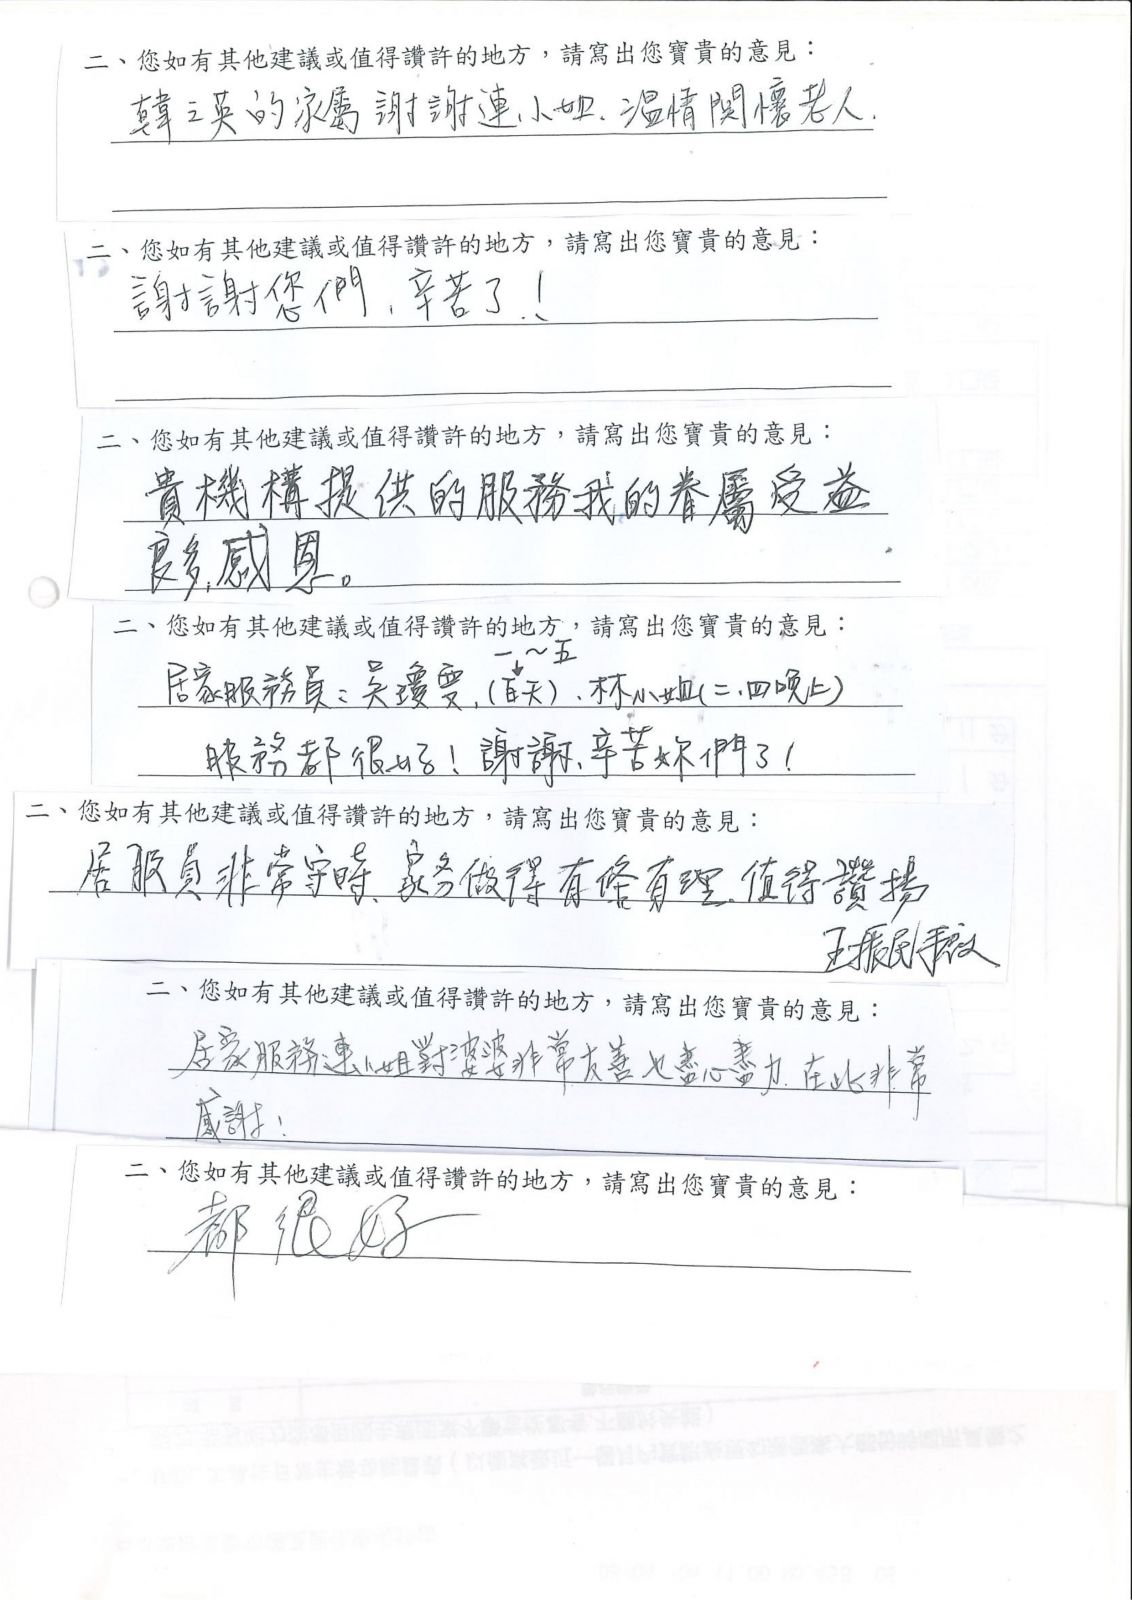 二、您如有其他建議或值得讚許的地方，請寫出您寶貴的意見：
韓三英的家屬謝謝連小姐、溫情関懷老人.
二、您如有其他建議或值得讚許的地方，請寫出您寶貴的意見：
謝謝您們，辛苦了！
二、您如有其他建議或值得讚許的地方，請寫出您寶貴的意見：
貴機構提供的服務我的眷屬受益
良多,感恩。
二、您如有其他建議或值得讚許的地方，請寫出您寶貴的意見：
一～五
居家服務員：吳瓊雯,(白天)、林小姐(二、四晚上)
服務都很好！謝謝、辛苦妳們了！
二、您如有其他建議或值得讚許的地方，請寫出您寶貴的意見：
居服員非常守時、家务做得有條有理、值得讚揚
王振民
二、您如有其他建議或值得讚許的地方，請寫出您寶貴的意見：
居家服務連小姐對婆婆非常友善也盡心盡力.在此非常
感謝！
二、您如有其他建議或值得讚許的地方，請寫出您寶貴的意見：
都很好